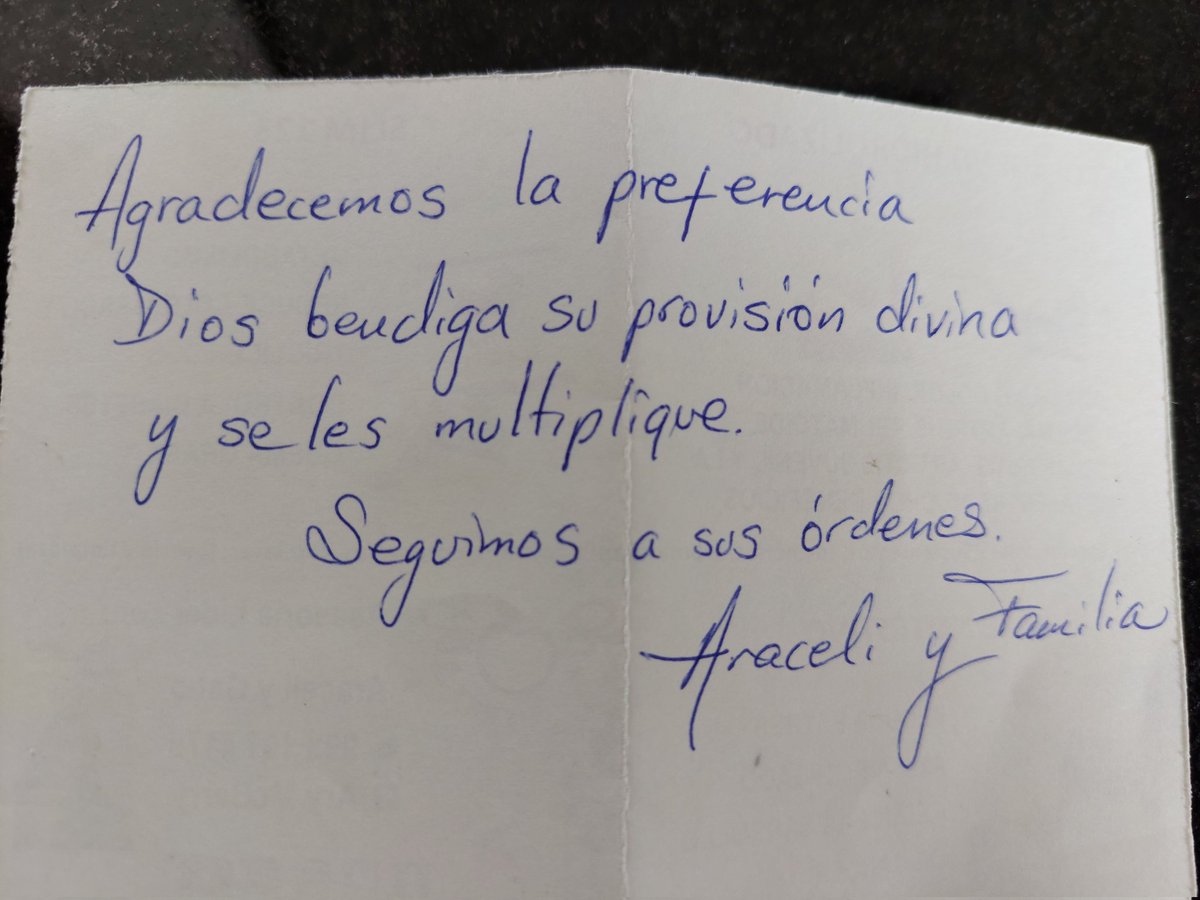 Agradecemos la preferencia
Dios bendiga su provisión divina
y se les multiplique.
Seguimos a sus órdenes.
Araceli y Familia